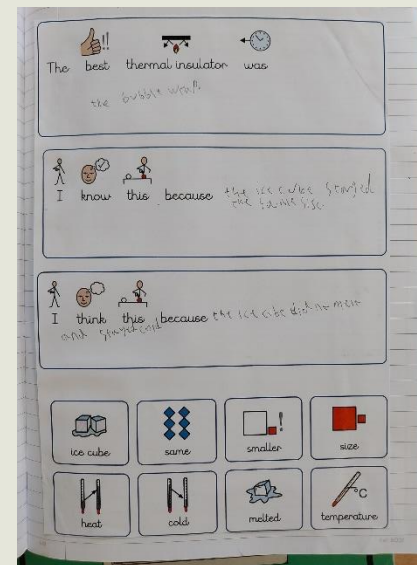 The best thermal insulator was
the bubble wrap.
I know this because the ice cube stayed
the same size.
I think this because the ice cube did no melt
and stayed cold
ice cube same smaller size
heat cold melted temperature